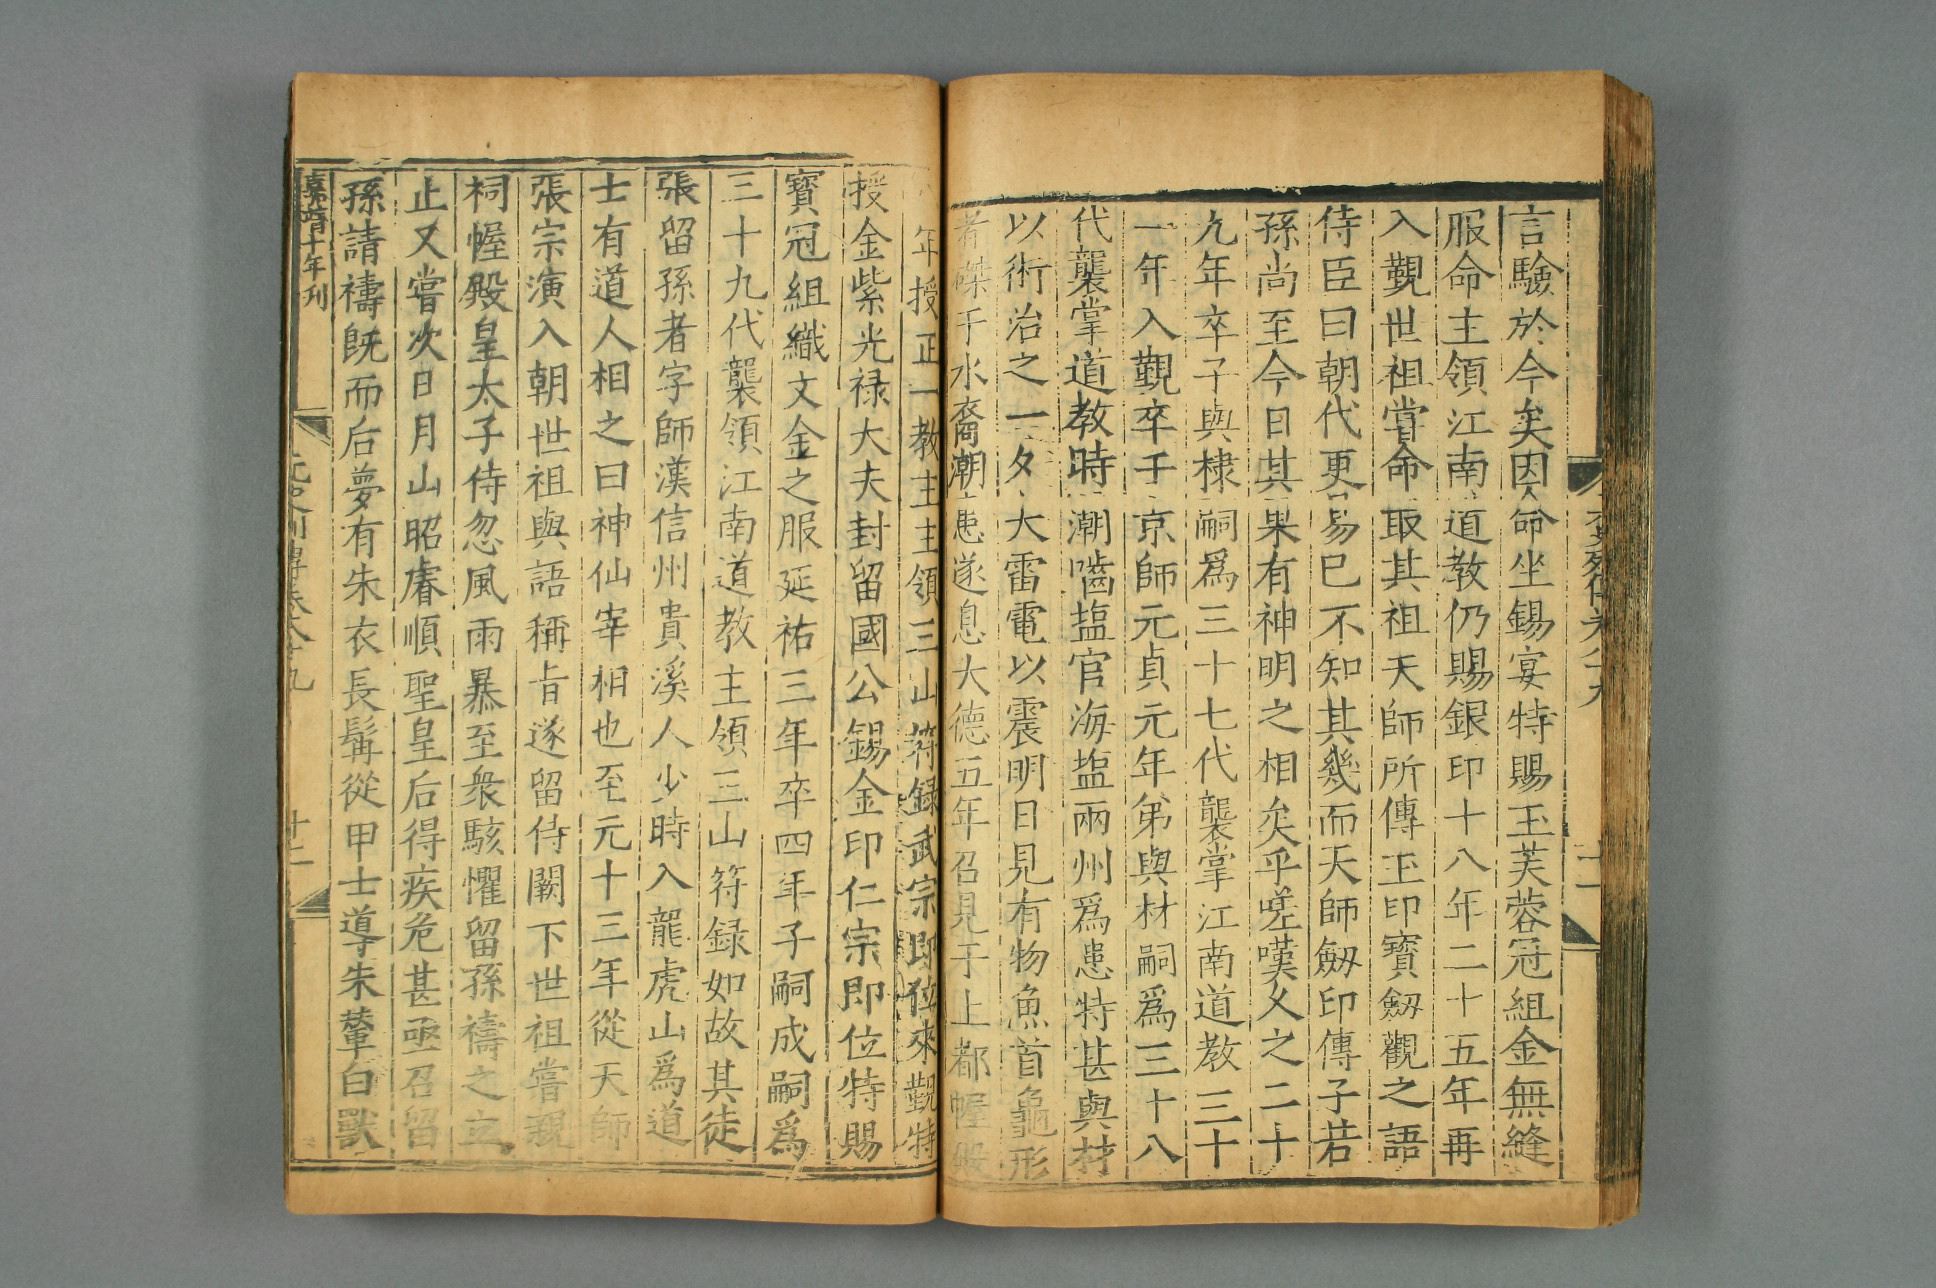 言驗於今矣因命坐錫宴特賜玉芙蓉冠組金無縫
服命主領江南道教仍賜銀印十八年二十五年再
入覲世祖嘗命取其祖天師所傳玉印寳劔觀之語
侍臣曰朝代更易已不知其幾而天師劔印傳子若
孫尚至今日其果有神明之相矣乎嗟嘆久之二十
九年卒子與棣嗣爲三十七代襲掌江南道教三十
一年入覲卒于京師元貞元年弟與材嗣爲三十八
代襲掌道教時潮嚙塩官海塩兩州爲患特甚與材
以術治之一夕大雷電以震明日見有物魚首龜形
者磔于水裔潮患遂息大德五年召見于上都幄殿
年授正一教主主領三山符録武宗即位來覲特
授金紫光禄大夫封留國公錫金印仁宗即位特賜
寳冠組織文金之服延祐三年卒四年子嗣成嗣爲
三十九代襲領江南道教主領三山符録如故其徒
張留孫者字師漢信州貴溪人少時入龍虎山爲道
士有道人相之曰神仙宰相也至元十三年從天師
張宗演入朝世祖與語稱旨遂留侍闕下世祖嘗親
祠幄殿皇太子侍忽風雨暴至衆駭懼留孫禱之立
止又嘗次日月山昭睿順聖皇后得疾危甚亟召留
孫請禱既而后夢有朱衣長髯從甲士導朱輦白獸
嘉靖十年刊
元史列傳卷八十九
十二